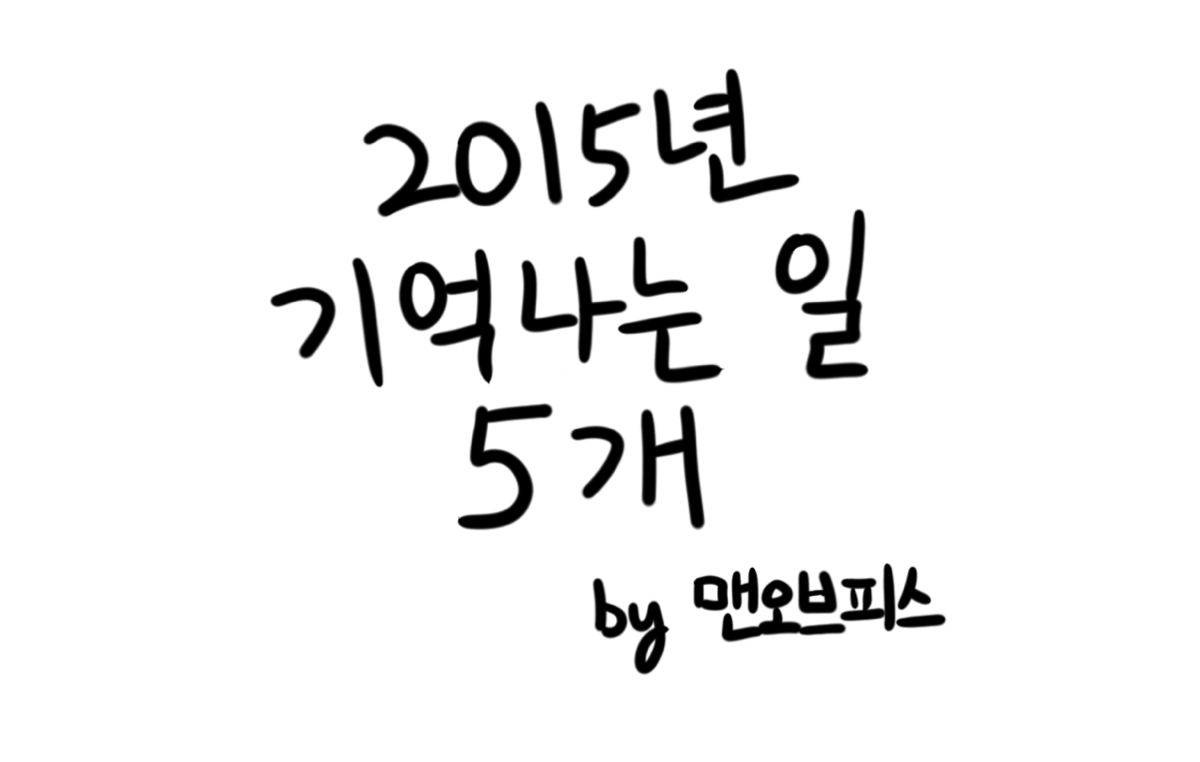 2015년
기억나는 일
5개
by 맨오브피스